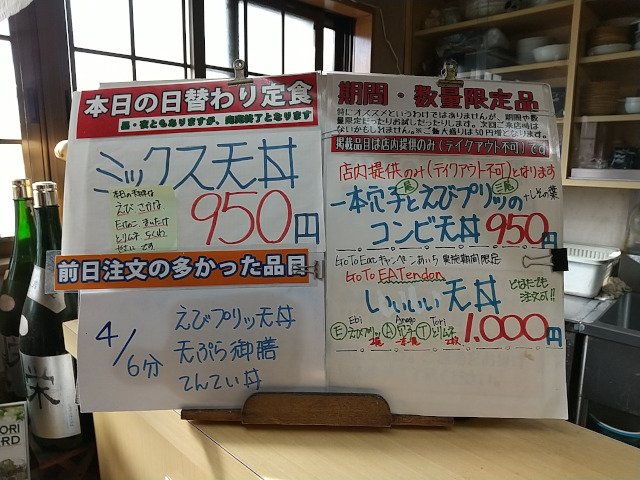 本日の日替わり定食
昼・夜ともありますが、完売終了となります
ミックス天丼
本日のネタは
えび さかな
とりムネ
です
950円
前日注文の多かった品目
4/6分
えびプリッ天丼
天ぷら御膳
てんてい丼
期間・数量限定品
特にオススメというわけではありませんが、期間や数
量限定だったりお試しだったりします。次回ご来店時は
ないかもしれません。※ご飯大盛りは50円増となります。
掲載品目は店内提供のみ(テイクアウト不可)です
店内提供のみ(テイクアウト不可)となります
一本穴子と二尾えびプリッの三尾+しその葉
コンビ天丼 950円
GoToEatキャンペーンあいち 実施期間限定
GoTo EATendon
いいいい天丼
どなたでも
注文可!!
Ebi Anago Tori
Eえびプリッ A穴子 Tとりムネ
2枚
1.000円
栄